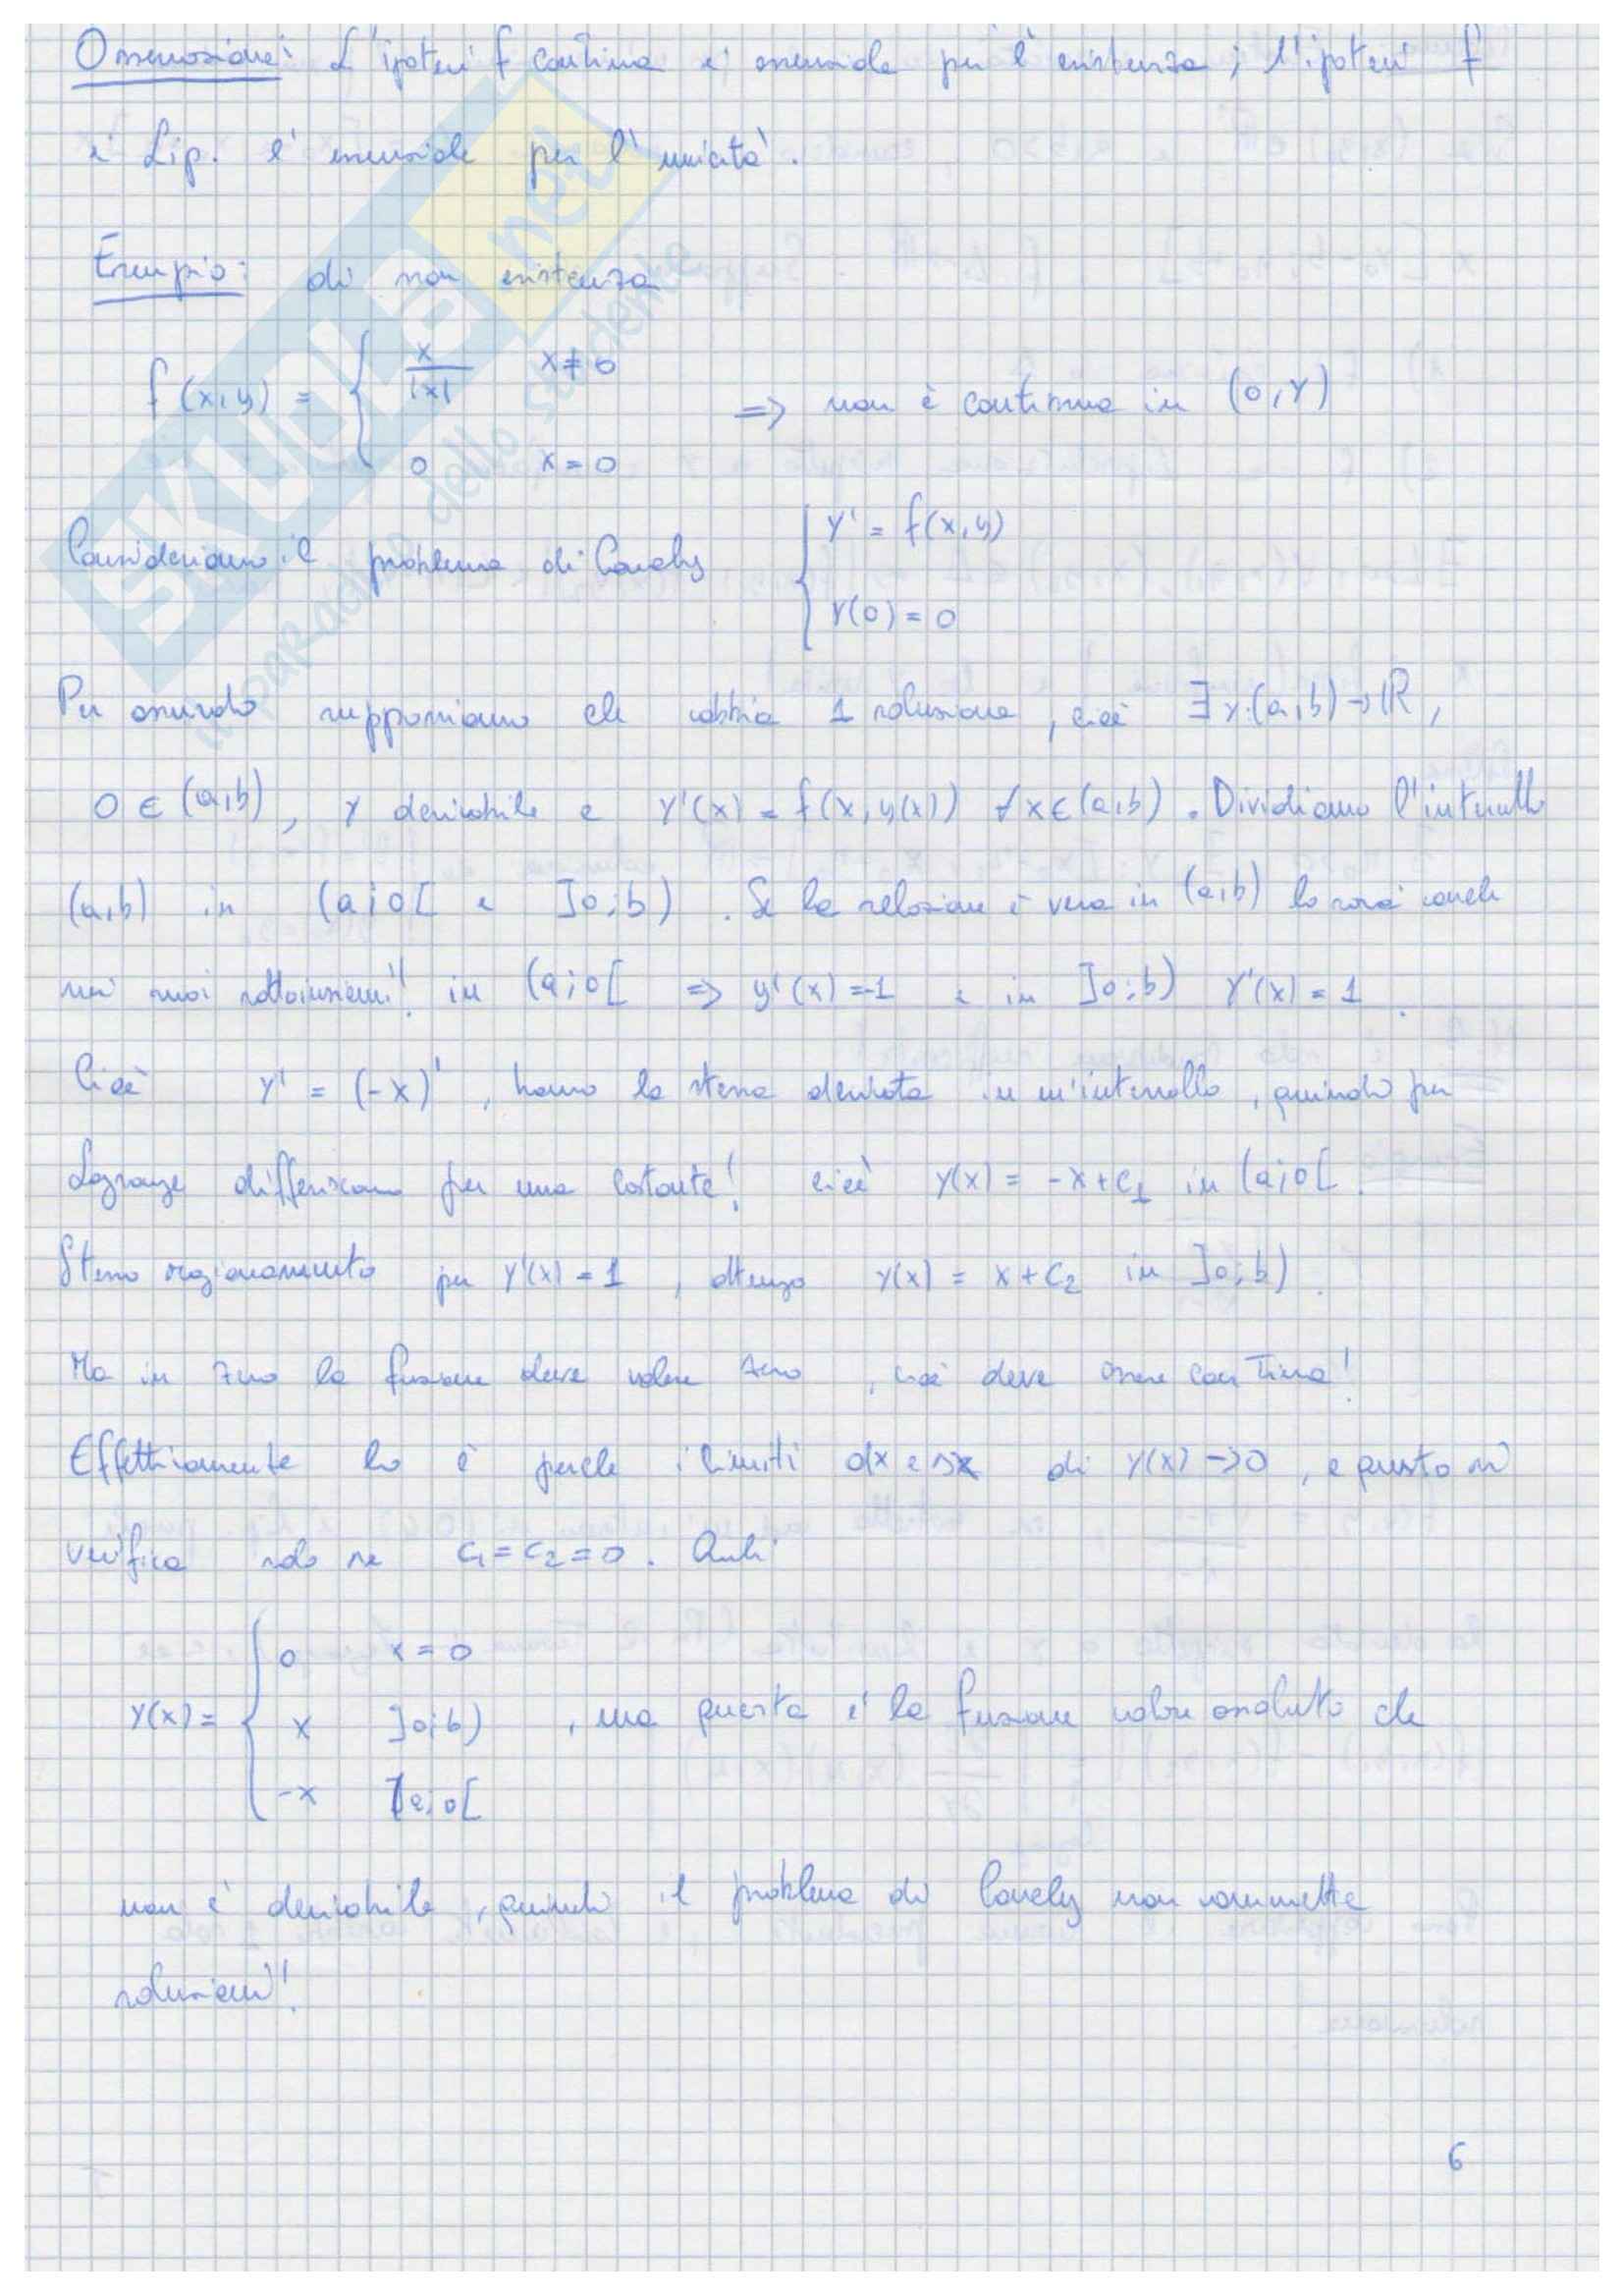 Osservazione: L'ipotesi f continua è essenziale per l'esistenza; l'ipotesi f
è Lip. è essenziale per l'unicità.
Esempio: di non esistenza
f(x,y) = { x/|x| x≠0
0 x=0
=> non è continua in (0,y)
Consideriamo il problema di Cauchy { y' = f(x,y)
y(0) = 0
Per assurdo supponiamo che abbia 1 soluzione, cioè ∃ y:(a,b)→ℝ,
0 ∈ (a,b), y derivabile e y'(x) = f(x,y(x)) ∀x∈(a,b). Dividiamo l'intervallo
(a,b) in (a;0[ e ]0;b). Se la relazione è vera in (a,b) lo sarà anche
nei suoi sottoinsiemi! in (a;0[ => y'(x)=-1 e in ]0;b) y'(x) = 1.
Cioè y' = (-x)', hanno la stessa derivata in un'intervallo, quindi per
Lagrange differiscono per una costante! cioè y(x) = -x+c₁ in (a;0[.
Stesso ragionamento per y'(x) = 1, ottengo y(x) = x+c₂ in ]0;b).
Ma in zero la funzione deve valere zero, cioè deve essere continua!
Effettivamente lo è perché i limiti dx e sx di y(x) →0, e questo si
verifica solo se c₁=c₂=0. Quindi
y(x) = { 0 x=0
x ]0;b)
-x ]a;0[
, ma questa è la funzione valore assoluto che
non è derivabile, quindi il problema di Cauchy non ammette
soluzioni!
6
SKUOLA.net
il paradiso dello studente